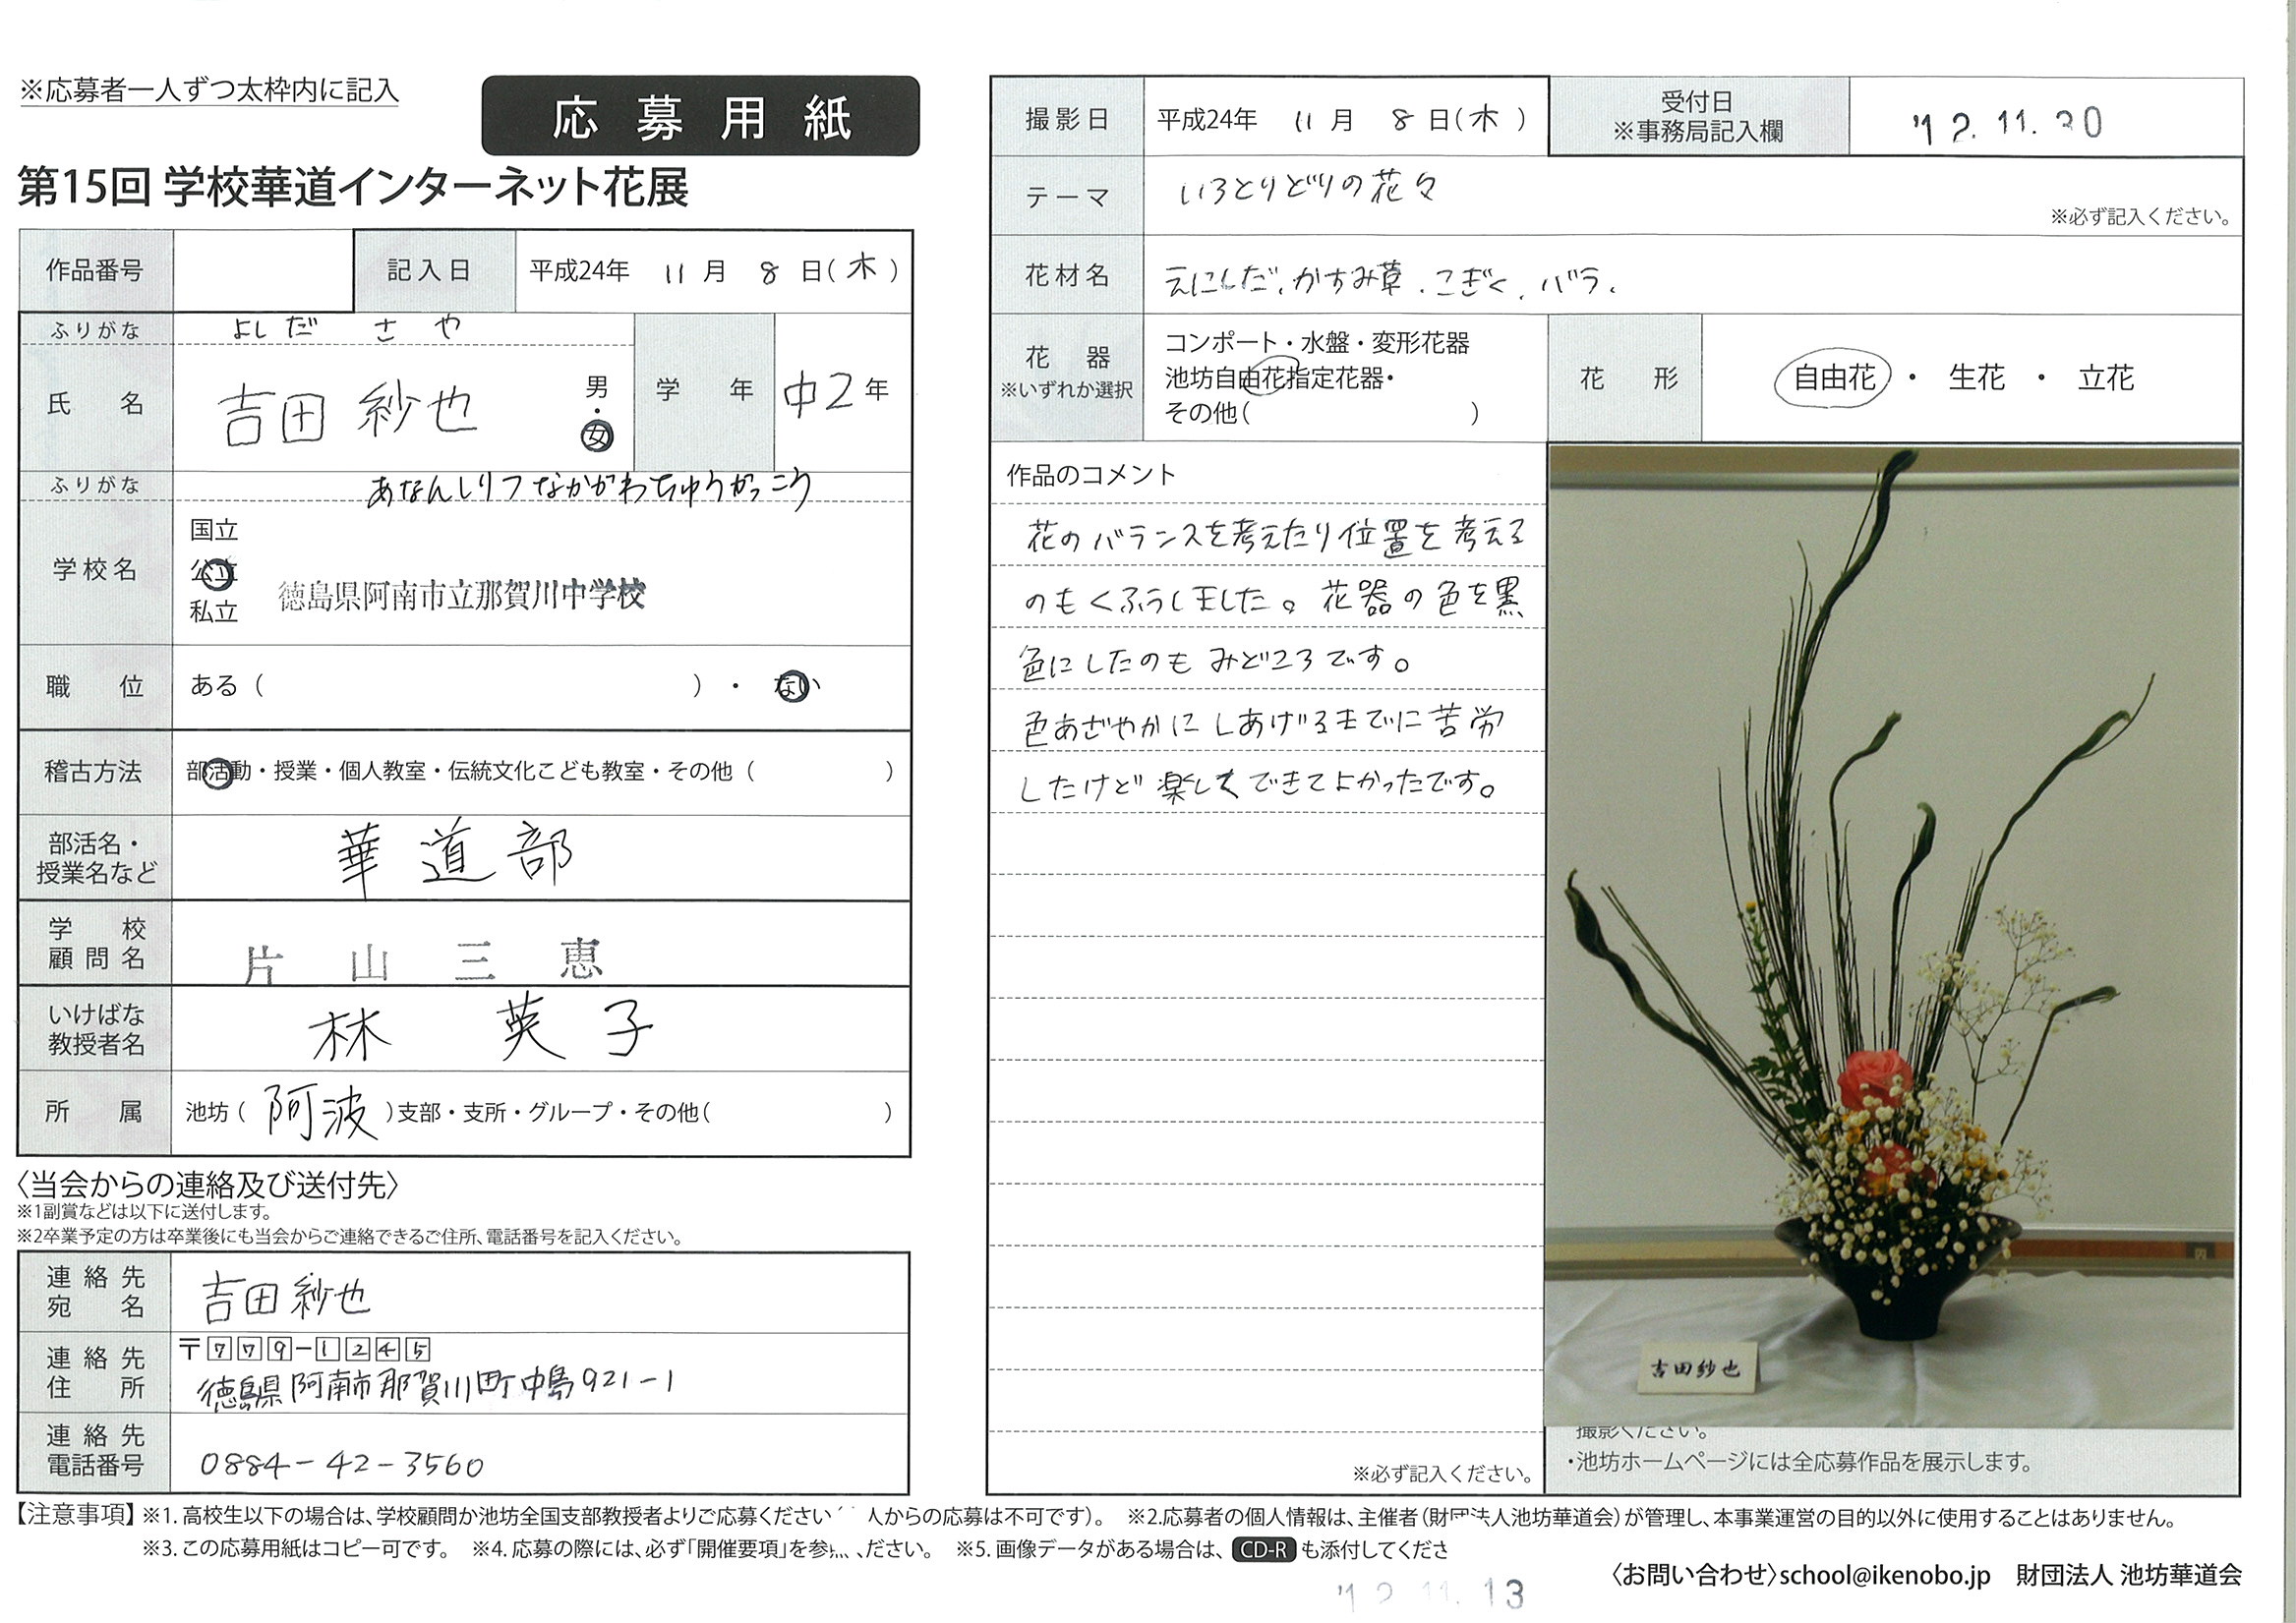 ※応募者一人ずつ太枠内に記入
応募用紙
第15回 学校華道インターネット花展
作品番号
記入日 平成24年 11月 8日(木)
ふりがな よしだ さや
氏名 吉田 紗也 男・女
学年 中2年
ふりがな あなんしりつなかがわちゅうがっこう
学校名
国立
公立
私立
徳島県阿南市立那賀川中学校
職位 ある( )・ない
稽古方法 部活動・授業・個人教室・伝統文化こども教室・その他( )
部活名・
授業名など
華道部
学校
顧問名
片山三恵
いけばな
教授者名
林 英子
所属 池坊(阿波)支部・支所・グループ・その他( )
〈当会からの連絡及び送付先〉
※1副賞などは以下に送付します。
※2卒業予定の方は卒業後にも当会からご連絡できるご住所、電話番号を記入ください。
連絡先
宛名
吉田紗也
連絡先
住所
〒779-1245
徳島県阿南市那賀川町中島921-1
連絡先
電話番号
0884-42-3560
撮影日 平成24年 11月 8日(木)
受付日
※事務局記入欄
'12.11.30
テーマ いろとりどりの花々
※必ず記入ください。
花材名 えにしだ.かすみ草.こぎく.バラ.
花器
※いずれか選択
コンポート・水盤・変形花器
池坊自由花指定花器・
その他( )
花形 自由花・生花・立花
作品のコメント
花のバランスを考えたり位置を考える
のもくふうしました。花器の色を黒
色にしたのもみどころです。
色あざやかにしあげるまでに苦労
したけど楽しくできてよかったです。
※必ず記入ください。
吉田紗也
撮影ください。
・池坊ホームページには全応募作品を展示します。
【注意事項】※1.高校生以下の場合は、学校顧問か池坊全国支部教授者よりご応募ください 人からの応募は不可です)。 ※2.応募者の個人情報は、主催者(財団法人池坊華道会)が管理し、本事業運営の目的以外に使用することはありません。
※3.この応募用紙はコピー可です。 ※4.応募の際には、必ず「開催要項」を参 ください。 ※5.画像データがある場合は、CD-Rも添付してくださ
〈お問い合わせ〉school@ikenobo.jp 財団法人 池坊華道会
'12.11.13